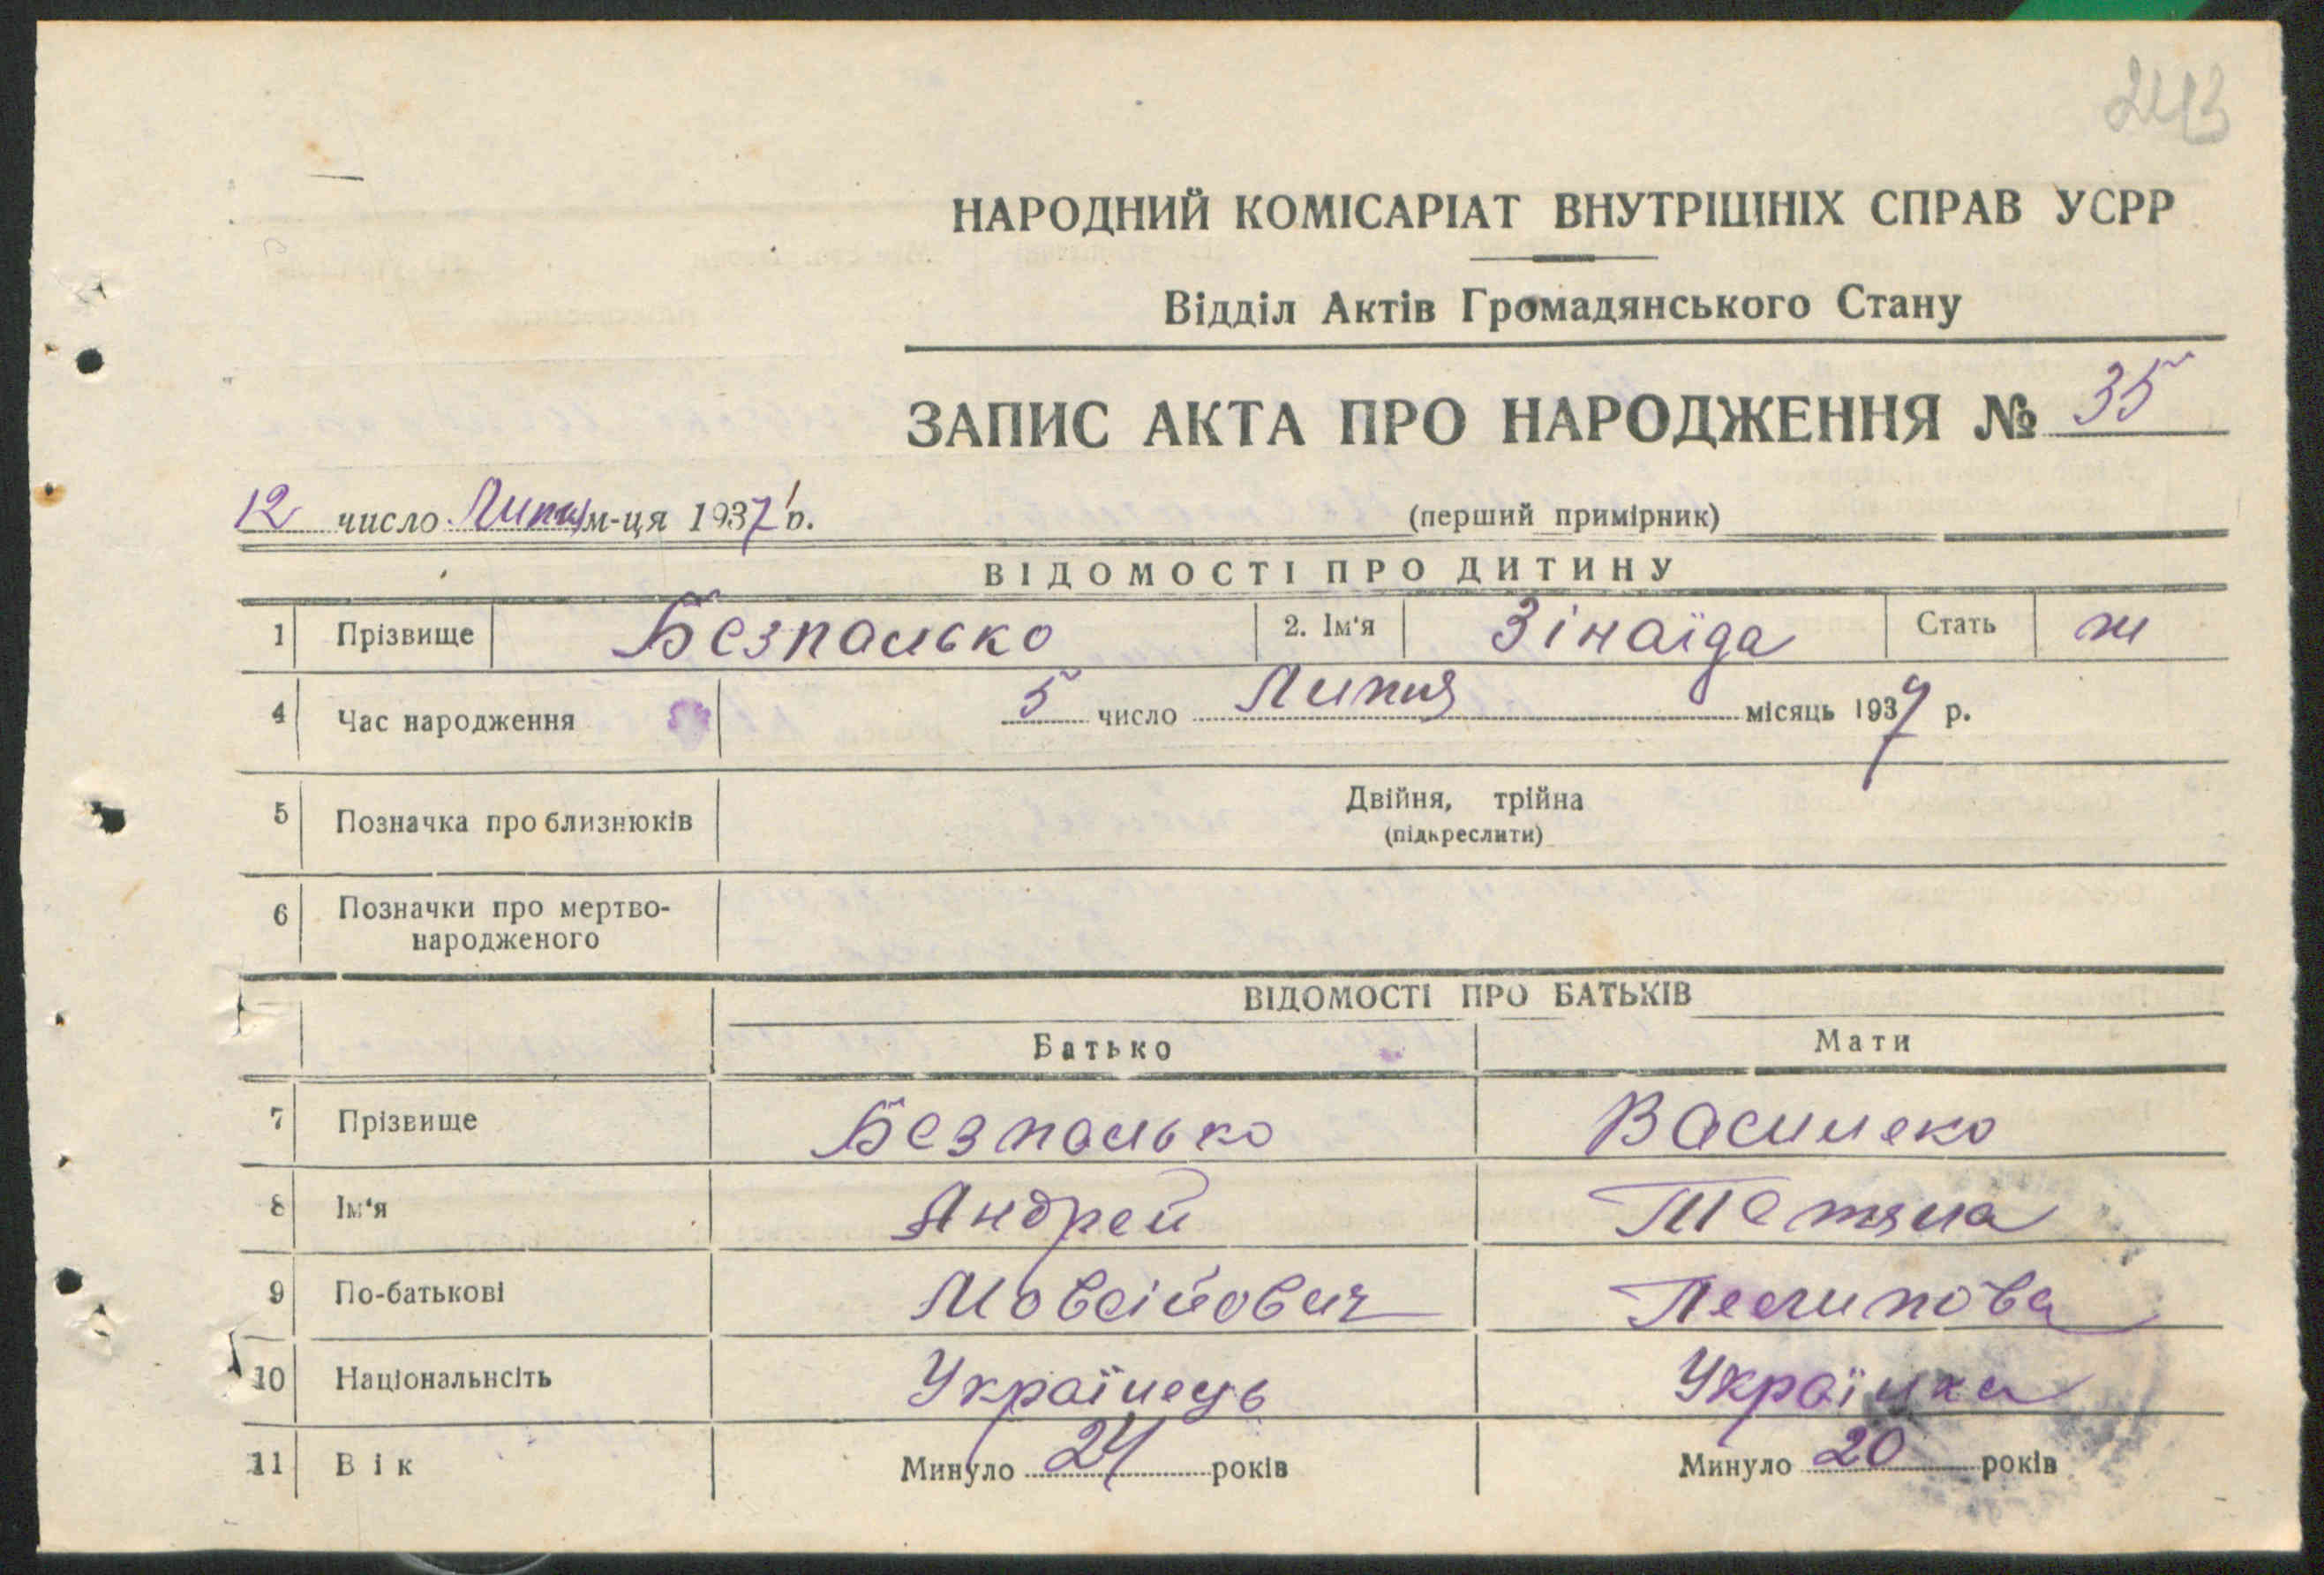 243
НАРОДНИЙ КОМІСАРІАТ ВНУТРІШНІХ СПРАВ УСРР
Відділ Актів Громадянського Стану
ЗАПИС АКТА ПРО НАРОДЖЕННЯ № 35
12 число Липня м-ця 1937 р. (перший примірник)
ВІДОМОСТІ ПРО ДИТИНУ
1 Прізвище Безпалько 2. Ім'я Зінаїда Стать ж
4 Час народження 5 число Липня місяць 1937 р.
5 Позначка про близнюків Двійня, трійна
(підкреслити)
6 Позначки про мертво-
народженого
ВІДОМОСТІ ПРО БАТЬКІВ
Батько Мати
7 Прізвище Безпалько Василеко
8 Ім'я Андрей Тетяна
9 По-батькові Мовсійович
10 Національнсіть Українець Українка
11 Вік Минуло 24 років Минуло 20 років